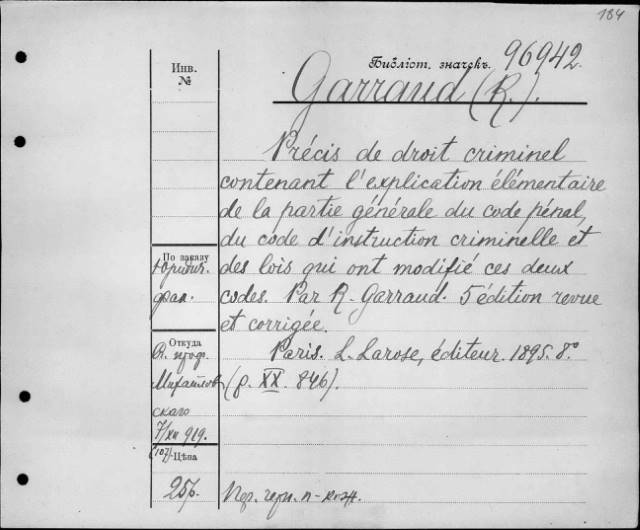 184
Инв.
№
Библіот. значекъ. 96942.
Garraud (R.).
Précis de droit criminel
contenant l'explication élémentaire
de la partie générale du code pénal,
du code d'instruction criminelle et
des lois qui ont modifié ces deux
codes. Par R. Garraud. 5 édition revue
et corrigée.
Paris. L. Larose, éditeur. 1895. 8º
(p. XX. 846).
По заказу
Юридич.
фак.
Откуда
проф.
Михайлов
скаго
7/XII 919.
Цѣна
25р.
Пер. черн. п-кож.